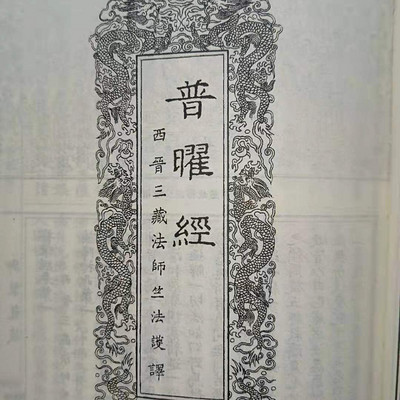 普曜經
西晉三藏法師竺法護譯